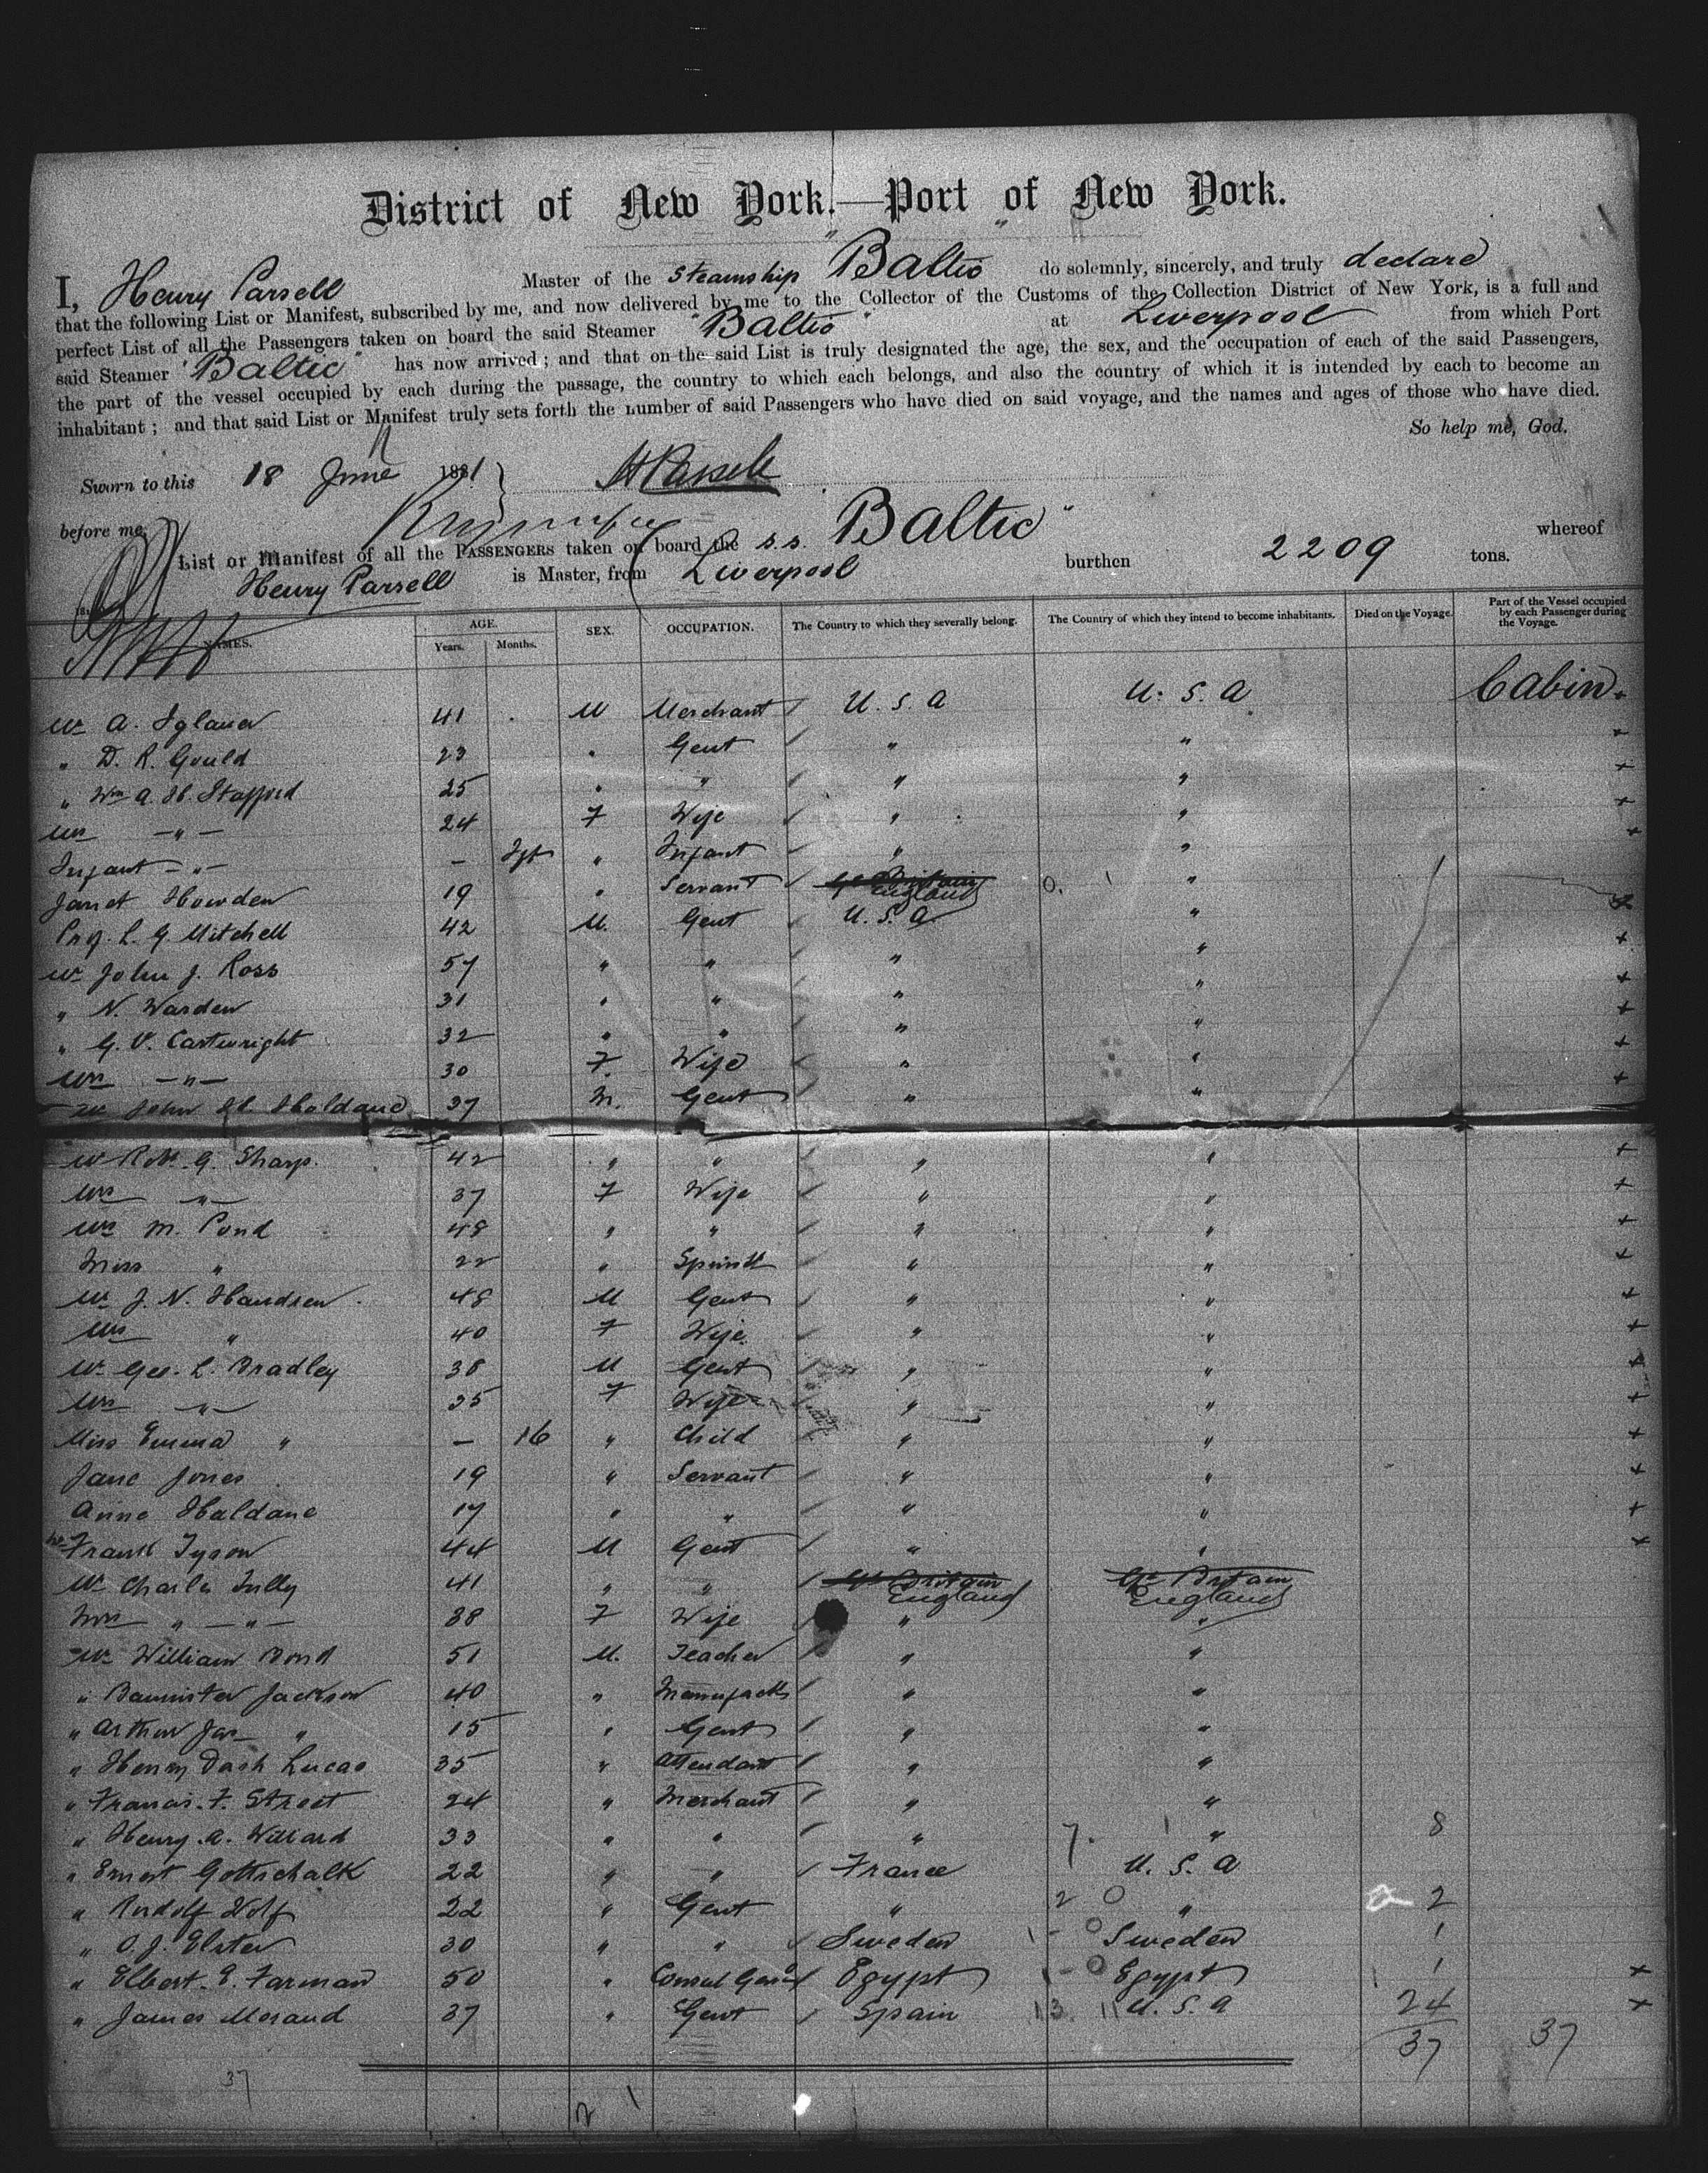 District of New York.—Port of New York.
I, Henry Parsell Master of the Steamship "Baltic" do solemnly, sincerely, and truly declare
that the following List or Manifest, subscribed by me, and now delivered by me to the Collector of the Customs of the Collection District of New York, is a full and
perfect List of all the Passengers taken on board the said Steamer "Baltic" at Liverpool from which Port
said Steamer "Baltic" has now arrived; and that on the said List is truly designated the age, the sex, and the occupation of each of the said Passengers,
the part of the vessel occupied by each during the passage, the country to which each belongs, and also the country of which it is intended by each to become an
inhabitant; and that said List or Manifest truly sets forth the number of said Passengers who have died on said voyage, and the names and ages of those who have died.
So help me, God.
Sworn to this 18 June 1881 H Parsell
before me,
List or Manifest of all the PASSENGERS taken on board the s.s. Baltic" whereof
Henry Parsell is Master, from Liverpool burthen 2209 tons.
NAMES. AGE. Years. Months. SEX. OCCUPATION. The Country to which they severally belong. The Country of which they intend to become inhabitants. Died on the Voyage. Part of the Vessel occupied by each Passenger during the Voyage.
Mr A. Iglauer 41 M Merchant U. S. A U. S. A Cabin
" D. R. Gould 23 " Gent " "
" Wm A. H. Stafford 25 " " " "
Mrs —"— 24 F Wife " "
Infant —"— — " Infant " "
Janet Howden 19 " Servant Gt Britain England 0. "
Prof. L. G. Mitchell 42 M. Gent U. S. A "
Mr John J. Ross 57 " " " "
" N. Warden 31 " " " "
" G. V. Cartwright 32 " " " "
Mrs —"— 30 F. Wife " "
Mr John H. Haldane 37 M. Gent " "
Mr Robt. G. Sharp. 42 " " " "
Mrs —"— 37 F Wife " "
Mrs M. Pond 48 " " " "
Miss " 22 " Spinst " "
Mr J. N. Handren 48 M Gent " "
Mrs " 40 F Wife " "
Mr Geo. L. Bradley 38 M Gent " "
Mrs —"— 35 F Wife " "
Miss Emma " — 16 " Child " "
Jane Jones 19 " Servant " "
Anne Haldane 17 " " " "
Mr Frank Tyson 44 M Gent " "
Mr Charles Tully 41 " " Gt Britain England Gt Britain England
Mrs " —"— 38 F Wife " "
Mr William Bond 51 M. Teacher " "
" Bannister Jackson 40 " Manufactr " "
" Arthur Jas " 15 " Gent " "
" Henry Dash Lucas 35 " Attendant " "
" Francis. F. Street 24 " Merchant " "
" Henry. A. Williard 33 " " " 7. " 8
" Ernest Gottschalk 22 " " France U. S. A
" Rudolf Wolf 22 " Gent " 2 0 " 2
" O. J. Elster 30 " " Sweden 1 - 0 Sweden 1
" Elbert. E. Farman 50 " Consul Genl Egypt 1 - 0 Egypt 1
" James Morand 37 " Gent Spain 13. 11 U. S. A 24
37 37
37
2 1